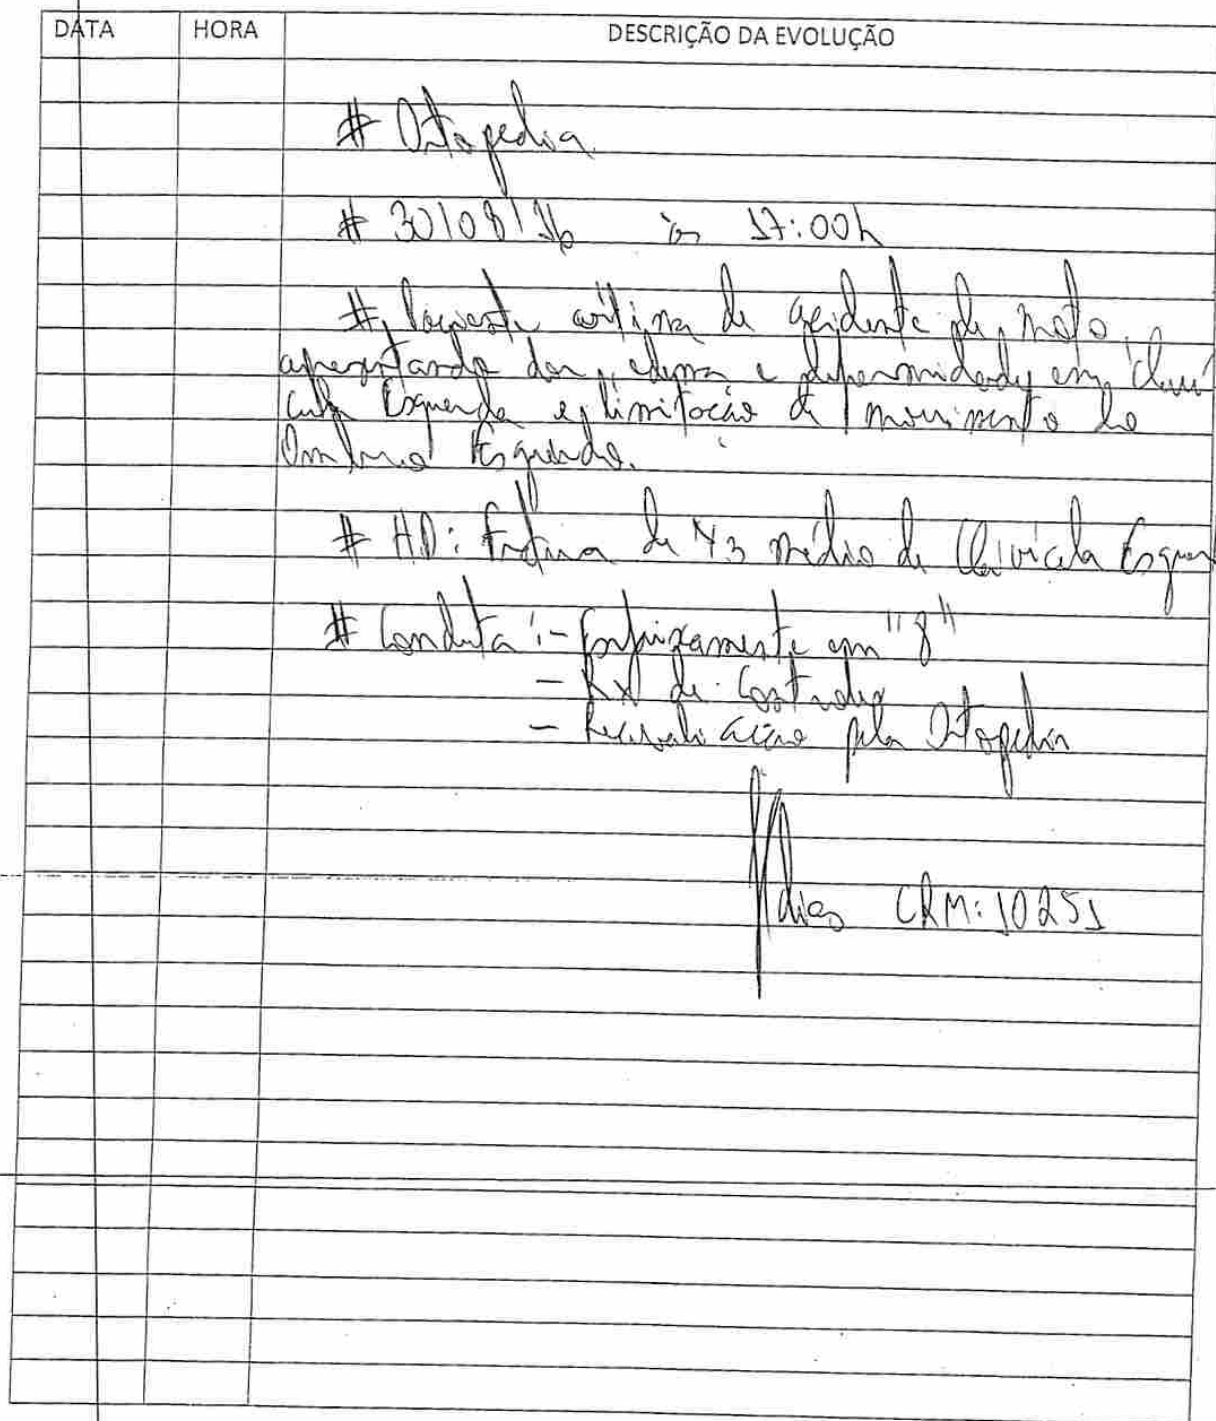 DATA HORA DESCRIÇÃO DA EVOLUÇÃO
# Ortopedia
# 30/08/16 às 17:00h
# Paciente vítima de acidente de moto,
apresentando dor, edema e deformidade em claví
cula Esquerda e limitação de movimento do
Ombro Esquerdo.
# HD: Fratura de 1/3 médio de Clavícula Esquer
# Conduta: - Enfaixamento em "8"
- RX de Controle
- Reavaliação pela Ortopedia
Dias CRM: 10251